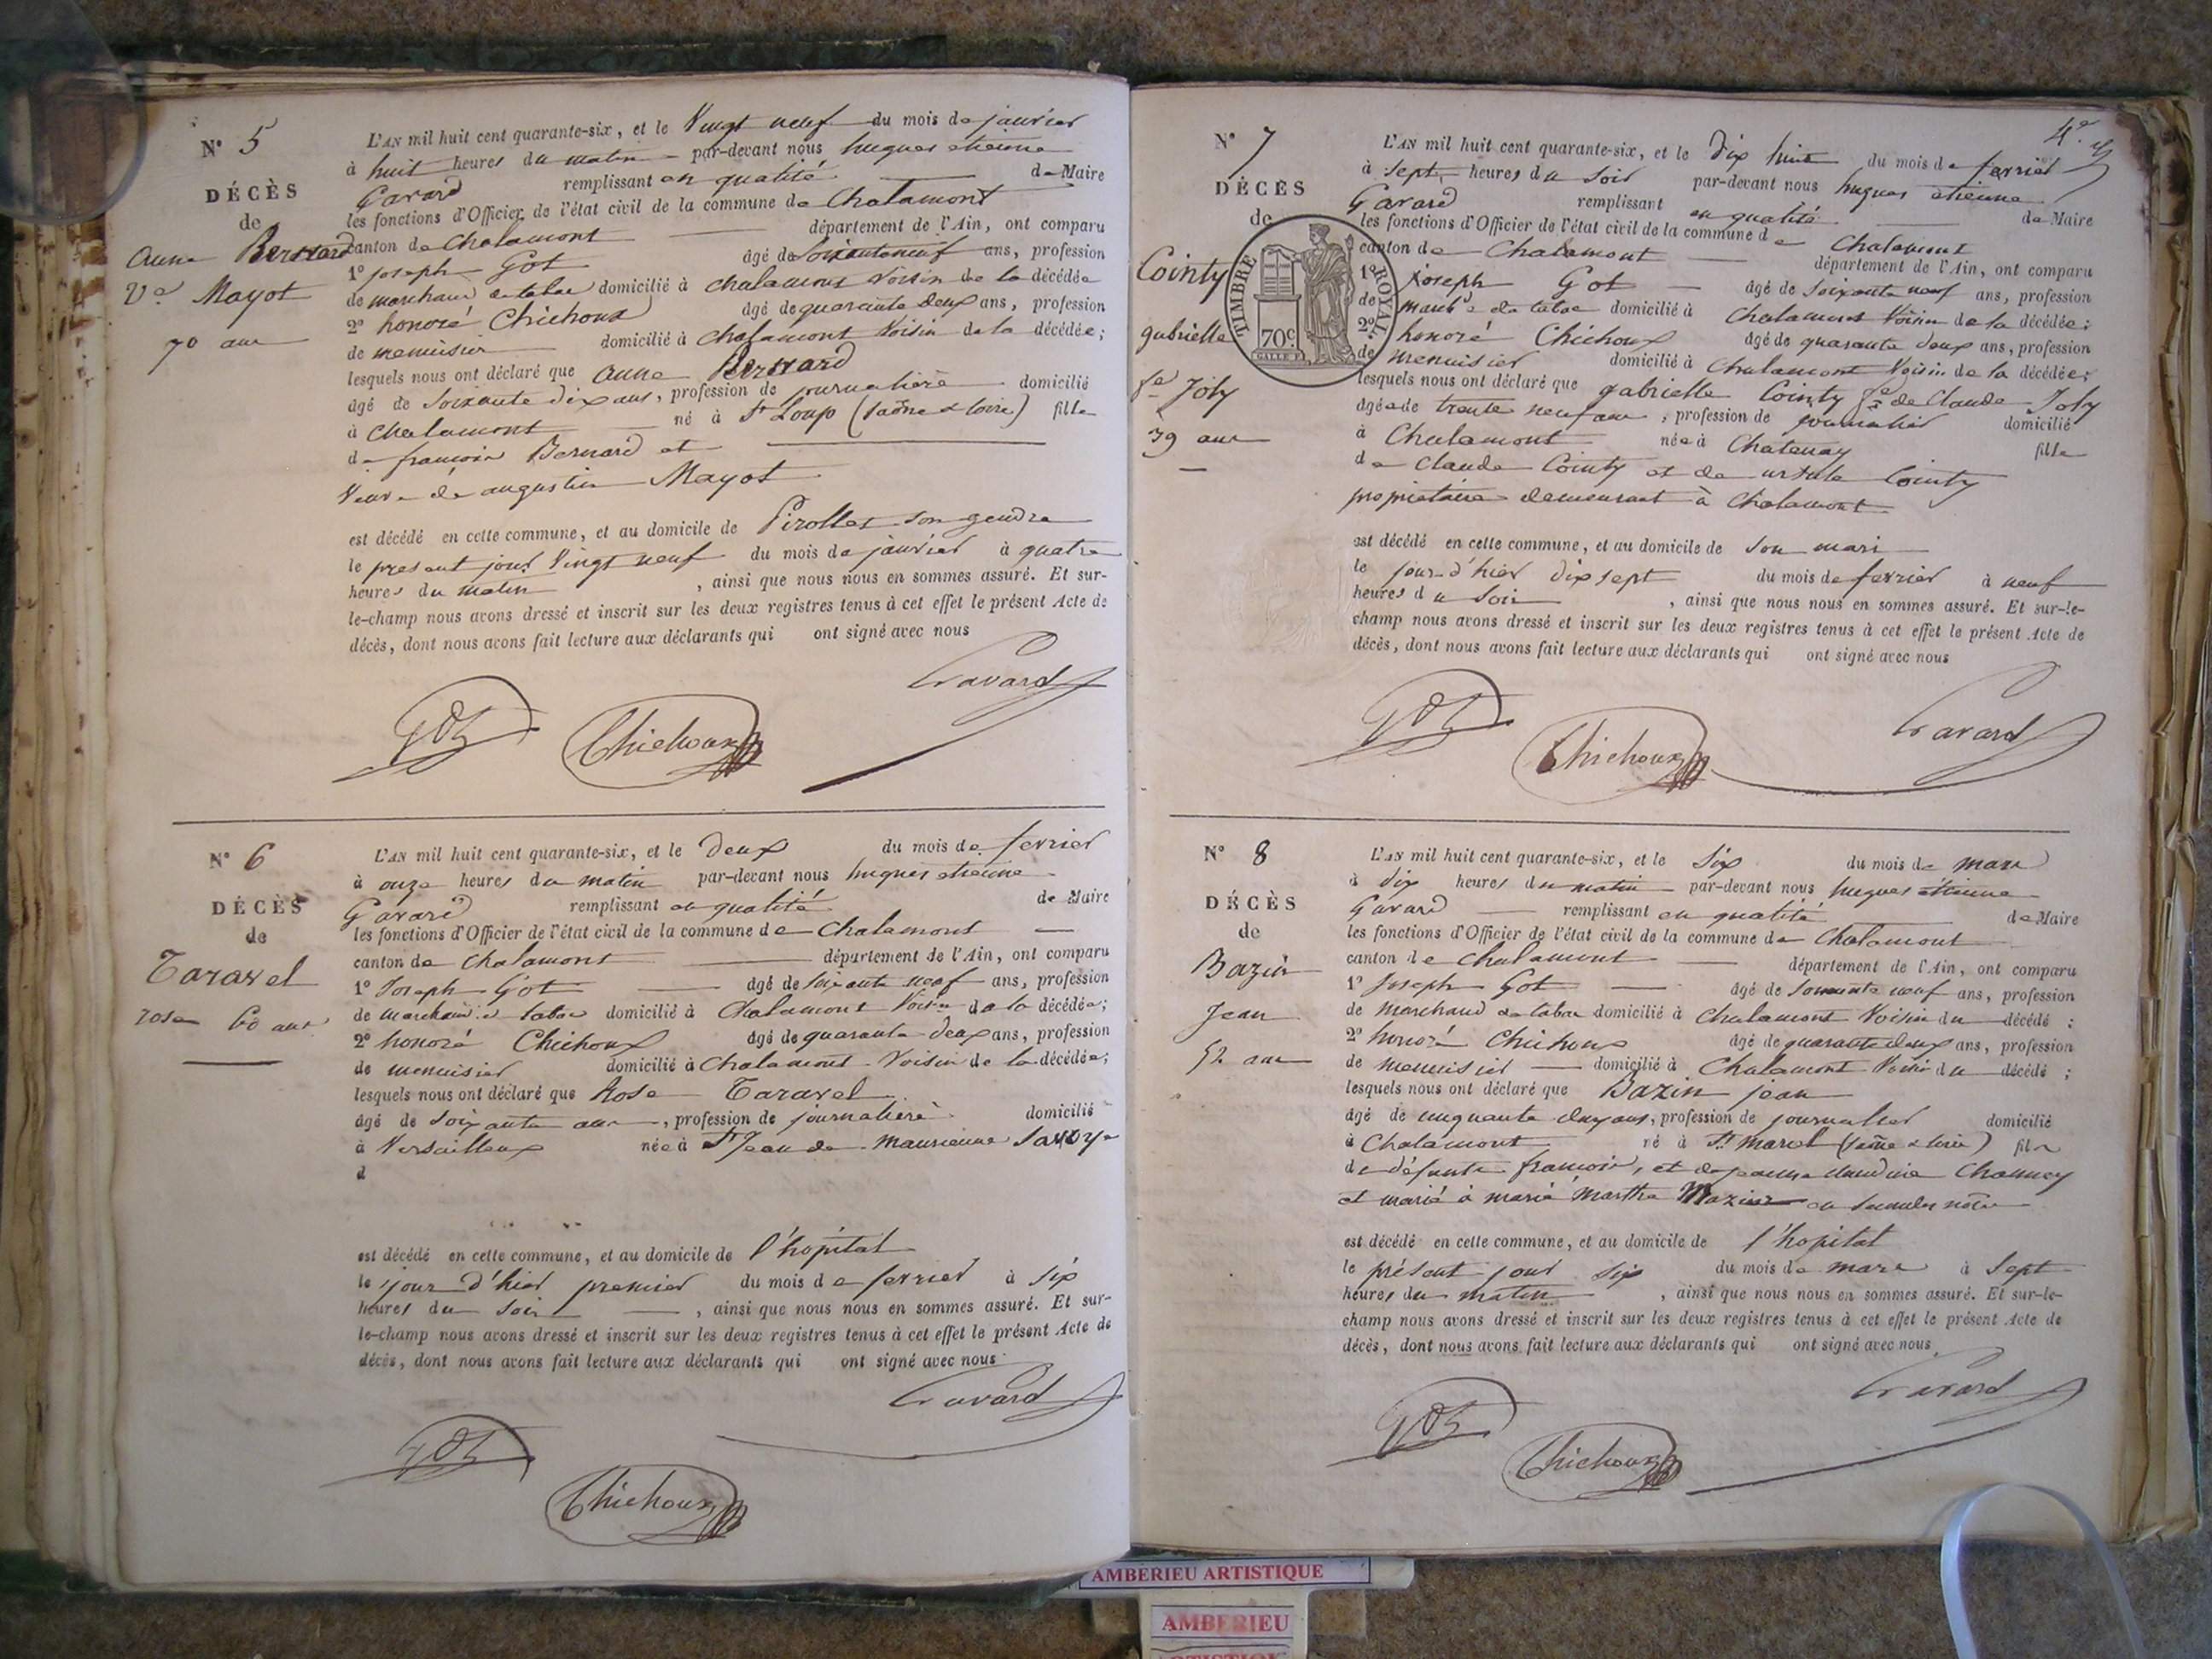 N° 5
DÉCÈS
de
anne Bernard
Ve Mayot
70 ans
L'AN mil huit cent quarante-six, et le Vingt neuf du mois de janvier
à huit heures du matin par-devant nous hugues etienne
Gavard remplissant en qualité de Maire
les fonctions d'Officier de l'état civil de la commune de Chalamont
canton de Chalamont département de l'Ain, ont comparu
1° joseph Got âgé de soixante neuf ans, profession
de marchand de tabac domicilié à chalamont Voisin de la décédée
2° honoré Chichoux âgé de quarante deux ans, profession
de menuisier domicilié à chalamont Voisin de la décédée;
lesquels nous ont déclaré que anne Bernard
âgé de soixante dix ans, profession de journalière domicilié
à chalamont né à St Loup (saône & loire) fille
de francois Bernard et
Veuve de augustin Mayot
est décédé en cette commune, et au domicile de Pirollet son gendre
le present jour Vingt neuf du mois de janvier à quatre
heures du matin , ainsi que nous nous en sommes assuré. Et sur-
le-champ nous avons dressé et inscrit sur les deux registres tenus à cet effet le présent Acte de
décès, dont nous avons fait lecture aux déclarants qui ont signé avec nous
Gavard
Got
Chichoux
N° 6
DÉCÈS
de
Taravel
rose 60 ans
L'AN mil huit cent quarante-six, et le deux du mois de fevrier
à onze heures du matin par-devant nous hugues etienne
Gavard remplissant en qualité de Maire
les fonctions d'Officier de l'état civil de la commune de Chalamont
canton de Chalamont département de l'Ain, ont comparu
1° Joseph Got âgé de soixante neuf ans, profession
de marchand de tabac domicilié à Chalamont Voisin de la décédée;
2° honoré Chichoux âgé de quarante deux ans, profession
de menuisier domicilié à Chalamont Voisin de la décédée;
lesquels nous ont déclaré que Rose Taravel
âgé de soixante ans, profession de journalière domicilié
à Versailleux née à St Jean de Maurienne Savoye
d
est décédé en cette commune, et au domicile de l'hôpital
le jour d'hier premier du mois de fevrier à six
heures du soir , ainsi que nous nous en sommes assuré. Et sur-
le-champ nous avons dressé et inscrit sur les deux registres tenus à cet effet le présent Acte de
décès, dont nous avons fait lecture aux déclarants qui ont signé avec nous
Gavard
Got
Chichoux
4e
N° 7
DÉCÈS
de
Cointy
gabrielle
fe Joly
39 ans
TIMBRE ROYAL
70c
L'AN mil huit cent quarante-six, et le dix huit du mois de fevrier
à sept heures du soir par-devant nous hugues etienne
Gavard remplissant en qualité de Maire
les fonctions d'Officier de l'état civil de la commune de Chalamont
canton de Chalamont département de l'Ain, ont comparu
1° joseph Got âgé de soixante neuf ans, profession
de marchd de tabac domicilié à Chalamont Voisin de la décédée;
2° honoré Chichoux âgé de quarante deux ans, profession
de menuisier domicilié à Chalamont Voisin de la décédée;
lesquels nous ont déclaré que gabrielle Cointy fe de Claude Joly
âgée de trente neuf ans, profession de journalier domicilié
à Chalamont née à Chatenay fille
de Claude Cointy et de ursule Cointy
propriétaires demeurant à Chalamont
est décédé en cette commune, et au domicile de son mari
le jour d'hier dix sept du mois de fevrier à neuf
heures du soir , ainsi que nous nous en sommes assuré. Et sur-le-
champ nous avons dressé et inscrit sur les deux registres tenus à cet effet le présent Acte de
décès, dont nous avons fait lecture aux déclarants qui ont signé avec nous
Gavard
Got
Chichoux
N° 8
DÉCÈS
de
Bazin
Jean
52 ans
L'AN mil huit cent quarante-six, et le six du mois de mars
à dix heures du matin par-devant nous hugues etienne
Gavard remplissant en qualité de Maire
les fonctions d'Officier de l'état civil de la commune de Chalamont
canton de Chalamont département de l'Ain, ont comparu
1° Joseph Got âgé de soixante neuf ans, profession
de Marchand de tabac domicilié à Chalamont Voisin du décédé;
2° honoré Chichoux âgé de quarante deux ans, profession
de menuisier domicilié à Chalamont Voisin du décédé;
lesquels nous ont déclaré que Bazin jean
âgé de cinquante deux ans, profession de journalier domicilié
à Chalamont né à St marcel (saône & loire) fils
de défunts francois, et de jeanne Chauney
et marié à marie marthe
est décédé en cette commune, et au domicile de l'hopital
le présent jour six du mois de mars à sept
heures du matin , ainsi que nous nous en sommes assuré. Et sur-le-
champ nous avons dressé et inscrit sur les deux registres tenus à cet effet le présent Acte de
décès, dont nous avons fait lecture aux déclarants qui ont signé avec nous
Gavard
Got
Chichoux
AMBERIEU ARTISTIQUE
AMBERIEU
ARTISTIQUE